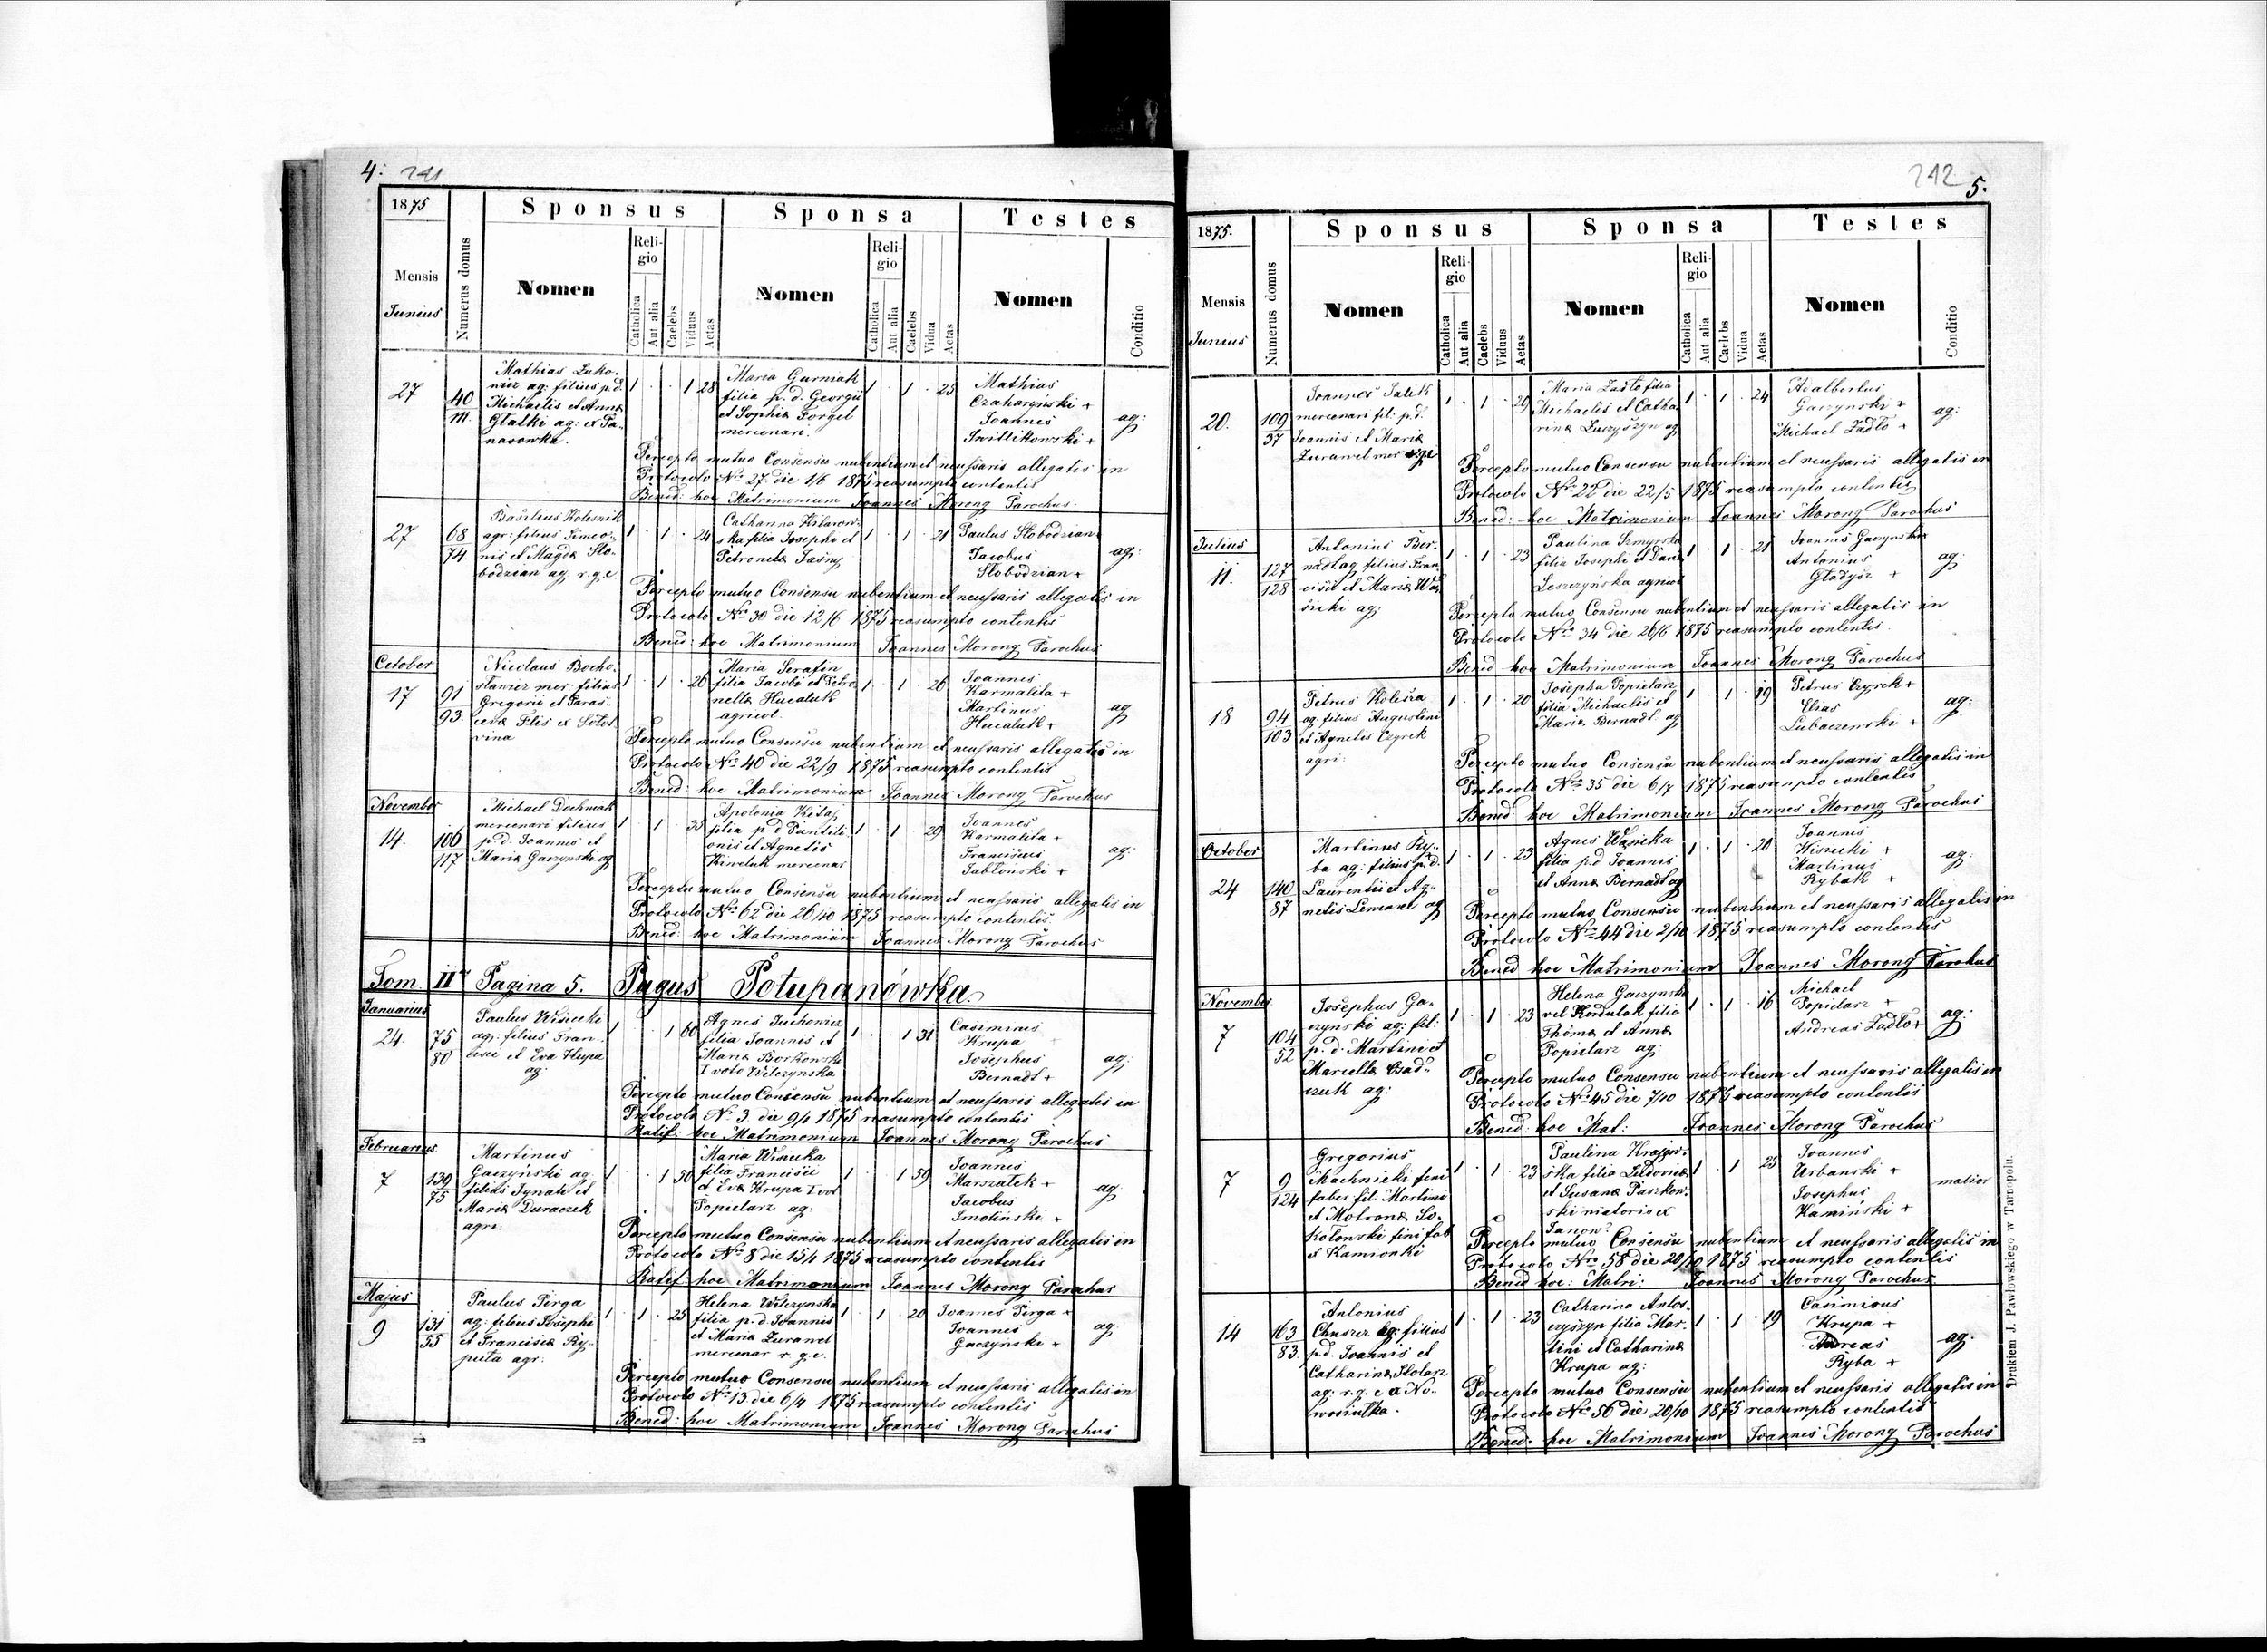 4: 241
1875 Sponsus Sponsa Testes
Mensis Junius
Numerus domus
Nomen
Religio
Catholica
Aut alia
Caelebs
Viduus
Aetas
Nomen
Religio
Catholica
Aut alia
Caelebs
Vidua
Aetas
Nomen
Conditio
27
40
111.
Mathias Zuko-
wicz ag: filius p.d.
Michaelis et Annæ
Glatki ag: ex Ta-
nasowka.
1 · · 1 28
Maria Gurniak
filia p. d. Georgii
et Sophiæ Forgel
mercenari.
1 · 1 · 25
Mathias
Czaharyński +
Joannes
Switlikowski +
ag:
Percepto mutuo Consensu nubentium et neussaris allegatis in
Protocolo Nro 27 die 1/6 1875 reasumpto contentis
Bened: hoc Matrimonium Joannes Morong Parochus
27
68
74
Basilius Kolesnik
agr: filius Simeo-
nis et Magdæ Slo-
bodzian ag: r.g.c.
1 · 1 · 24
Catharina Kilarow-
ska filia Josephi et
Petronelæ Jasny
1 · 1 · 21
Paulus Slobodzian
Jacobus
Slobodzian +
ag:
Percepto mutuo Consensu nubentium et neussaris allegatis in
Protocolo Nro 30 die 12/6 1875 reasumpto contentis
Bened: hoc Matrimonium Joannes Morong Parochus
October
17
91
93.
Nicolaus Bocho-
stawiez mer. filius
Gregorii et Paras-
cevæ Flis ex
1 · 1 · 26
Maria Serafin
filia Jacobi et Petro
nellæ Hucaluk
agricol.
1 · 1 · 26
Joannes
Karmalita +
Martinus
Hucaluk +
ag
Percepto mutuo Consensu nubentium et neussaris allegatis in
Protocolo Nro 40 die 22/9 1875 reasumpto contentis
Bened: hoc Matrimonium Joannes Morong Parochus
November
14.
106
117
Michael Dochniak
mercenari filius
p.d. Joannis et
Mariæ Gaczynski ag
1 · 1 · 35
Apolonia Kitaj
filia p.d Pantili-
onis et Agnetis
Kiweluk mercenar
1 · 1 · 29
Joannes
Karmalita +
Franciscus
Jabłonski +
ag:
Percepto mutuo Consensu nubentium et neussaris allegatis in
Protocolo Nro 62 die 26/10 1875 reasumpto contentis
Bened: hoc Matrimonium Joannes Morong Parochus
Tom. II Pagina 5. Pagus Połupanówka.
Januarius
24.
75
80
Paulus Wisiecki
ag: filius Fran-
cisci et Eva Krupa
ag:
1 · · 1 60
Agnes Juchowicz
filia Joannis et
Mariæ Borkowska
I voto Wilczynska
1 · · 1 31
Casimirus
Krupa
Josephus
Bernadt +
ag:
Percepto mutuo Consensu nubentium et neussaris allegatis in
Protocolo Nr 3 die 9/1 1875 reasumpto contentis
Ratif: hoc Matrimonium Joannes Morong Parochus
Februarius
7
139
75
Martinus
Gaczyński ag.
filius Ignati et
Mariæ Duraczek
agri:
1 · · 1 50
Maria Wisiecka
filia Francisci
et Evæ Krupa I vot
Popielarz ag:
1 · · 1 59
Joannes
Marszalek +
Jacobus
Smoliński +
ag
Percepto mutuo Consensu nubentium et neussaris allegatis in
Protocolo Nro 8 die 15/1 1875 reasumpto contentis
Ratif: hoc Matrimonium Joannes Morong Parochus
Majus
9
131
55
Paulus Pirga
ag: filius Josephi
et Franciscæ Ry-
puta agr:
1 · 1 · 25
Helena Wilczynska
filia p.d. Joannis
et Mariæ Zurawel
mercenar r.g.c.
1 · 1 · 20
Joannes Pirga +
Joannes
Gaczynski +
ag
Percepto mutuo Consensu nubentium et neussaris allegatis in
Protocolo Nro 13 die 6/4 1875 reasumpto contentis
Bened: hoc Matrimonium Joannes Morong Parochus
242 5.
1875. Sponsus Sponsa Testes
Mensis Junius
Numerus domus
Nomen
Religio
Catholica
Aut alia
Caelebs
Viduus
Aetas
Nomen
Religio
Catholica
Aut alia
Caelebs
Vidua
Aetas
Nomen
Conditio
20.
109
37
Joannes Salik
mercenari fil: p.d.
Joannis et Mariæ
Zurawel mer
1 · 1 · 29
Maria Zadło filia
Michaelis et Catha-
rinæ Luczyszyn ag
1 · 1 · 24
Adalbertus
Gaczynski +
Michael Zadło +
ag:
Percepto mutuo Consensu nubentium et neussaris allegatis in
Protocolo Nro 22 die 22/5 1875 reasumpto contentis
Bened: hoc Matrimonium Joannes Morong Parochus
Julius
11.
127
128
Antonius Ber-
nadt ag filius Fran-
cisci et Mariæ Wi-
siecki ag:
1 · 1 · 23
Paulina Szmyrska
filia Josephi et
Leszczyńska agricol
1 · 1 · 21
Joannes Gaczynski
Antonius
Gładysz +
ag:
Percepto mutuo Consensu nubentium et neussaris allegatis in
Protocolo Nro 34 die 26/6 1875 reasumpto contentis.
Bened hoc Matrimonium Joannes Morong Parochus
18
94
103
Petrus Kolisza
ag: filius Augustini
et Agnetis Czyrek
agri:
1 · 1 · 20
Josepha Popielarz
filia Michaelis et
Mariæ Bernadt ag
1 · 1 · 19
Petrus Czyrek +
Elias
Lubaczewski +
ag:
Percepto mutuo Consensu nubentium et neussaris allegatis in
Protocolo Nro 35 die 6/7 1875 reasumpto contentis
Bened: hoc Matrimonium Joannes Morong Parochus
October
24
140
87
Martinus Ry-
ba ag: filius p.d.
Laurentii et Ag-
netis ag
1 · 1 · 23
Agnes Wisiecka
filia p.d Joannis
et Annæ Bernadt ag
1 · 1 · 20
Joannes
Wisiecki +
Martinus
Rybak +
ag:
Percepto mutuo Consensu nubentium et neussaris allegatis in
Protocolo Nro 44 die 2/10 1875 reasumpto contentis
Bened hoc Matrimonium Joannes Morong Parochus
November
7
104
52
Josephus Ga-
czynski ag: fil:
p.d. Martini et
Marcellæ Bad-
czuk ag:
1 · 1 · 23
Helena Gaczynska
vel Kordulak filia
Thomæ et Annæ
Popielarz ag:
1 · 1 · 16
Michael
Popielarz +
Andreas Zadło +
ag:
Percepto mutuo Consensu nubentium et neussaris allegatis in
Protocolo Nro 45 die 7/10 1875 reasumpto contentis
Bened: hoc Mat: Joannes Morong Parochus
7
9
124
Gregorius
Machnicki feni
faber fil: Martini
et Motronæ So-
kołowski fini fab
ex Kamionki
1 · 1 · 23
Paulina Krajew-
ska filia Ludovici
et Susanæ Paszkow-
ski viatoris ex
Janow
1 · 1 · 25
Joannes
Urbanski +
Josephus
Kamiński +
Percepto mutuo Consensu nubentium et neussaris allegatis in
Protocolo Nro 58 die 20/10 1875 reasumpto contentis
Bened hoc: Matri: Joannes Morong Parochus
14
163
83.
Antonius
Chuszcz ag: filius
p.d. Joannis et
Catharinæ Stolarz
ag: r.g.c ex No-
wosiułka.
1 · 1 · 23
Catharina Antos-
czyszyn filia Mar-
tini et Catharinæ
Krupa ag:
1 · 1 · 19
Casimirus
Krupa +
Andreas
Ryba +
ag:
Percepto mutuo Consensu nubentium et neussaris allegatis in
Protocolo Nro 56 die 20/10 1875 reasumpto contentis
Bened: hoc Matrimonium Joannes Morong Parochus
Drukiem J. Pawłowskiego w Tarnopolu.